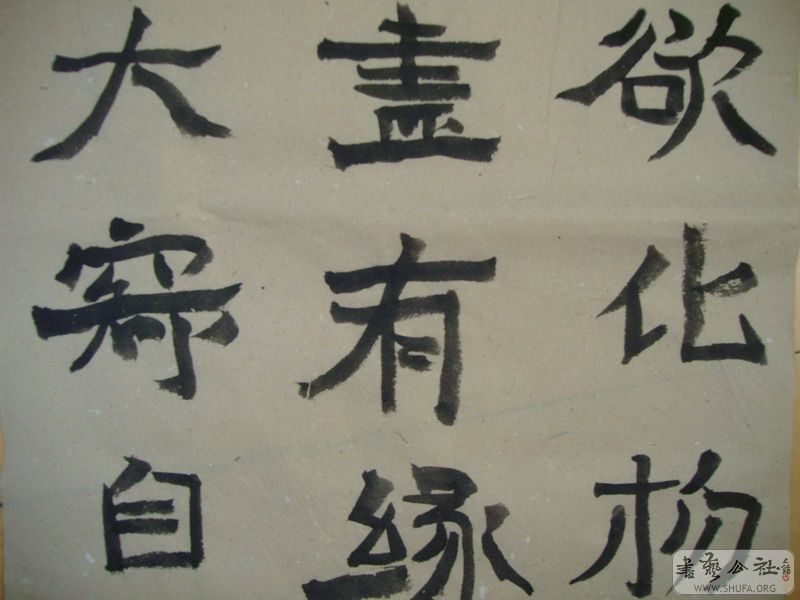 欲化物
盡有緣
大自
書藝公社
WWW.SHUFA.ORG